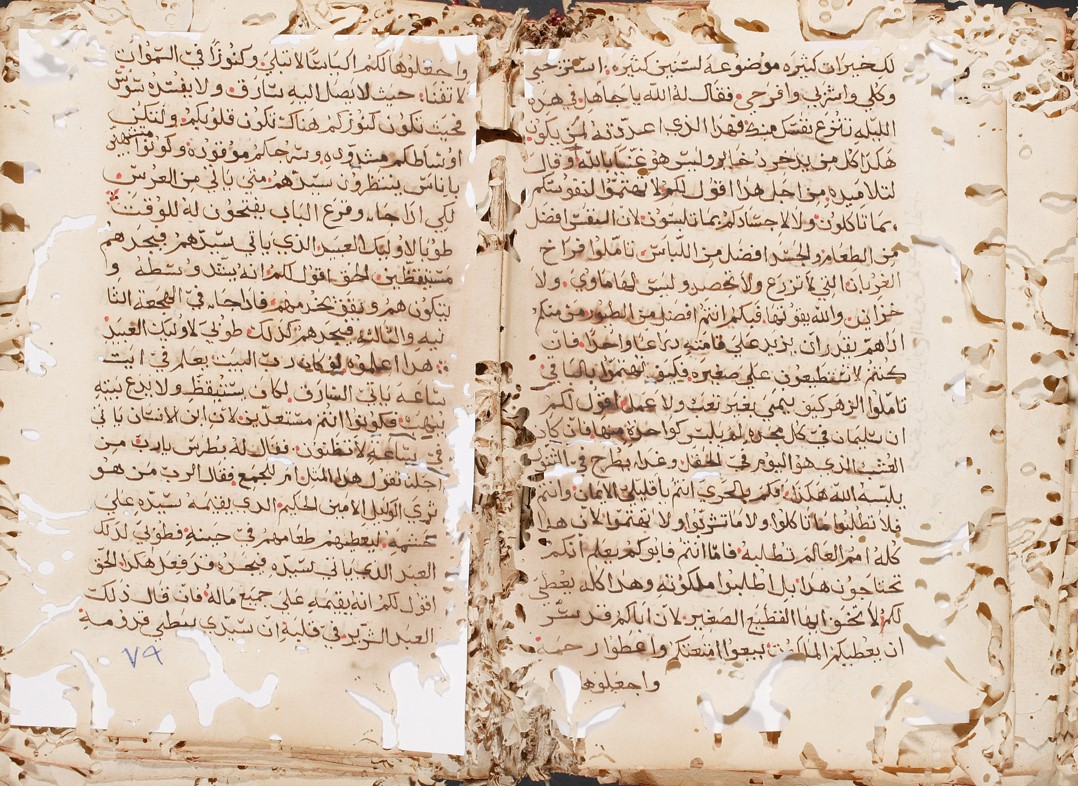 لك خيرات كثيره موضوعة لسنين كثيره استريحي
وكلي واشربي وافرحي فقال له الله يا جاهل في هذه
الليله تنزع نفسك منك وهذا الذي اعددته لمن يكون
هكذا كل من يدخر ذخاير وليس هو غنيا بالله وقال
لتلاميذه من اجل هذا اقول لكم لا تهتموا لنفوسكم
بما تاكلون ولا لاجسادكم بما تلبسون لان النفس افضل
من الطعام والجسد افضل من اللباس تاملوا فراخ
الغربان التي لا تزرع ولا تحصد وليس لها ماوي ولا
خزاين والله يقوتها فبكم انتم افضل من الطيور من منكم
اذا هم يقدر ان يزيد علي قامته ذراعا واحدا فان
كنتم لا تستطيعون علي صغيره فكيف تهتموا بالباقي
تاملوا الزهر كيف ينمي بغير تعب ولا عمل اقول لكم
ان سليمان في كل مجده لم يلبس كواحدة منها فان كان
العشب الذي هو اليوم في الحقل وغدا يطرح في التنور
يلبسه الله هكذا فكم بالحري انتم يا قليلي الايمان وانتم
فلا تطلبوا ما تاكلوا ولا ما تشربوا ولا تهتموا لان هذا
كله امم العالم تطلبه فاما انتم فابوكم يعلم انكم
تحتاجون هذا بل اطلبوا ملكوته وهذا كله يعطي
لكم لا تخف ايها القطيع الصغير لان اباكم قد سر
ان يعطيكم الملكوت بيعوا امتعتكم واعطوا رحمة
واجعلوها
واجعلوها لكم اكياسا لا تبلي وكنوزا في السموات
لا تفنا حيث لا يصل اليه سارق ولا يفسده سوس
فحيث تكون كنوزكم هناك تكون قلوبكم ولتكن
اوساطكم مشدوده وسرجكم موقوده وكونوا متشبهين
باناس ينتظرون سيدهم متي ياتي من العرس
لكي اذا جاء وقرع الباب يفتحون له للوقت
طوبا لاوليك العبيد الذي ياتي سيدهم فيجدهم
مستيقظين الحق اقول لكم انه يشد وسطه و
يتكون هم ويقف يخدمهم فاذا جاء في الهجعه الثا
نيه والثالثه فيجدهم كذلك طوبي لاوليك العبيد
هذا اعلموه لو كان رب البيت يعلم في ايت
ساعه ياتي السارق لكان يستيقظ ولا يدع بيته
ينهب فكونوا انتم مستعدين لان ابن الانسان ياتي
في ساعه لا تظنون فقال له بطرس يارب من
اجلنا تقول هذا المثل ام للجميع فقال الرب من هو
تري الوكيل الامين الحكيم الذي يقيمه سيده علي
حشمه ليعطيهم طعامهم في حينه فطوبي لذلك
العبد الذي ياتي سيده فيجده قد فعل هكذا الحق
اقول لكم انه يقيمه علي جميع ماله فان قال ذلك
العبد الشرير في قلبه ان سيدي يبطي قدومه
٧٩